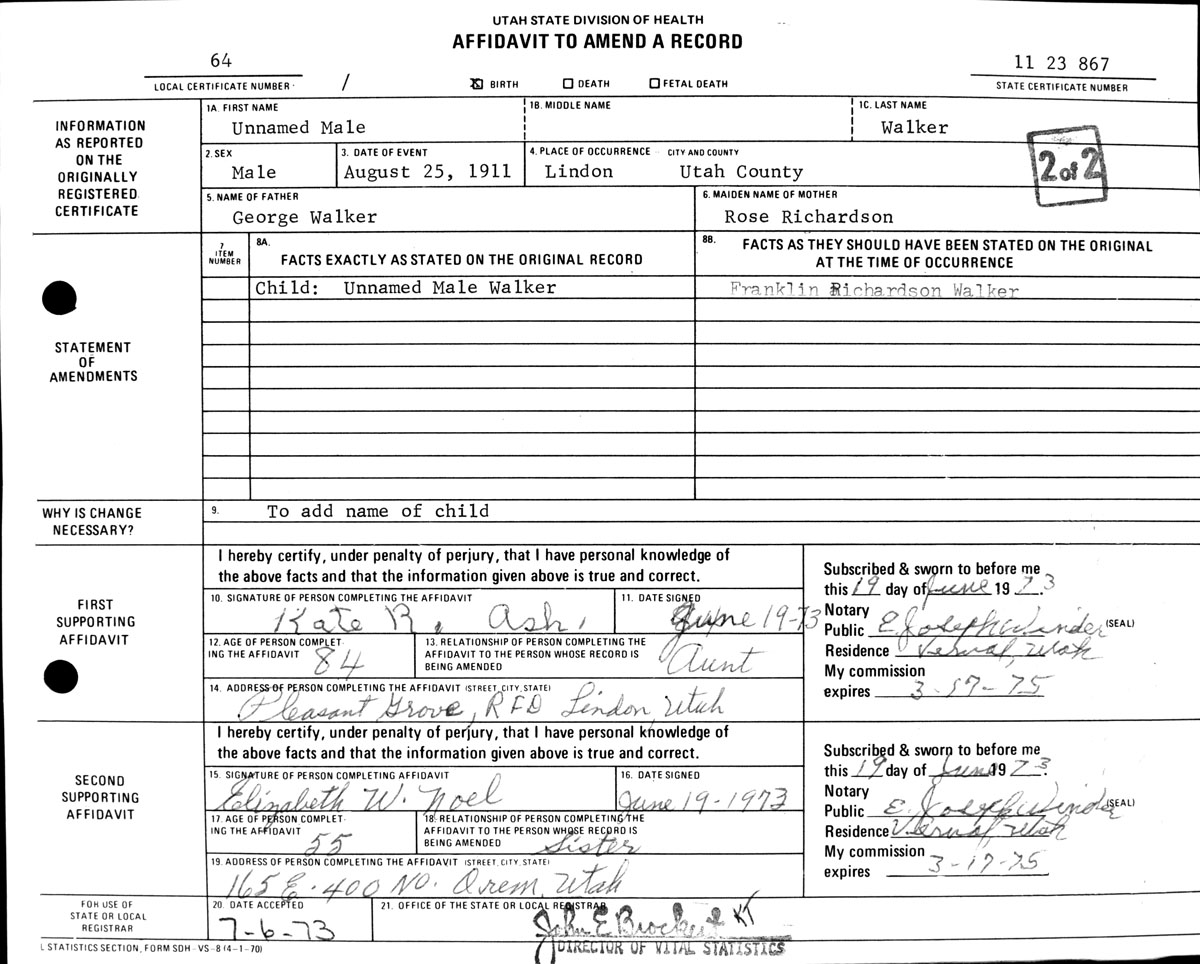 UTAH STATE DIVISION OF HEALTH
AFFIDAVIT TO AMEND A RECORD
64
LOCAL CERTIFICATE NUMBER
/
☒ BIRTH ☐ DEATH ☐ FETAL DEATH
11 23 867
STATE CERTIFICATE NUMBER
INFORMATION AS REPORTED ON THE ORIGINALLY REGISTERED CERTIFICATE
1A. FIRST NAME 1B. MIDDLE NAME 1C. LAST NAME
Unnamed Male Walker
2 of 2
2. SEX 3. DATE OF EVENT 4. PLACE OF OCCURRENCE – CITY AND COUNTY
Male August 25, 1911 Lindon Utah County
5. NAME OF FATHER 6. MAIDEN NAME OF MOTHER
George Walker Rose Richardson
STATEMENT OF AMENDMENTS
7 ITEM NUMBER
8A. FACTS EXACTLY AS STATED ON THE ORIGINAL RECORD
8B. FACTS AS THEY SHOULD HAVE BEEN STATED ON THE ORIGINAL AT THE TIME OF OCCURRENCE
Child: Unnamed Male Walker Franklin Richardson Walker
WHY IS CHANGE NECESSARY?
9. To add name of child
FIRST SUPPORTING AFFIDAVIT
I hereby certify, under penalty of perjury, that I have personal knowledge of
the above facts and that the information given above is true and correct.
10. SIGNATURE OF PERSON COMPLETING THE AFFIDAVIT 11. DATE SIGNED
Kate R. Ash. June 19-73
12. AGE OF PERSON COMPLETING THE AFFIDAVIT
84
13. RELATIONSHIP OF PERSON COMPLETING THE AFFIDAVIT TO THE PERSON WHOSE RECORD IS BEING AMENDED
Aunt
14. ADDRESS OF PERSON COMPLETING THE AFFIDAVIT (STREET, CITY, STATE)
Pleasant Grove, RFD Lindon, Utah
Subscribed & sworn to before me
this 19 day of June 19 73.
Notary
Public E. Joseph Winder (SEAL)
Residence Vernal, Utah
My commission
expires 3-17-75
SECOND SUPPORTING AFFIDAVIT
I hereby certify, under penalty of perjury, that I have personal knowledge of
the above facts and that the information given above is true and correct.
15. SIGNATURE OF PERSON COMPLETING AFFIDAVIT 16. DATE SIGNED
Elizabeth W. Noel June 19-1973
17. AGE OF PERSON COMPLETING THE AFFIDAVIT
55
18. RELATIONSHIP OF PERSON COMPLETING THE AFFIDAVIT TO THE PERSON WHOSE RECORD IS BEING AMENDED
Sister
19. ADDRESS OF PERSON COMPLETING THE AFFIDAVIT (STREET, CITY, STATE)
165 E. 400 No. Orem, Utah
Subscribed & sworn to before me
this 19 day of June 19 73.
Notary
Public E. Joseph Winder (SEAL)
Residence Vernal, Utah
My commission
expires 3-17-75
FOR USE OF STATE OR LOCAL REGISTRAR
20. DATE ACCEPTED 21. OFFICE OF THE STATE OR LOCAL REGISTRAR
7-6-73 John E Brockert KT
DIRECTOR OF VITAL STATISTICS
L STATISTICS SECTION, FORM SDH-VS-8 (4-1-70)